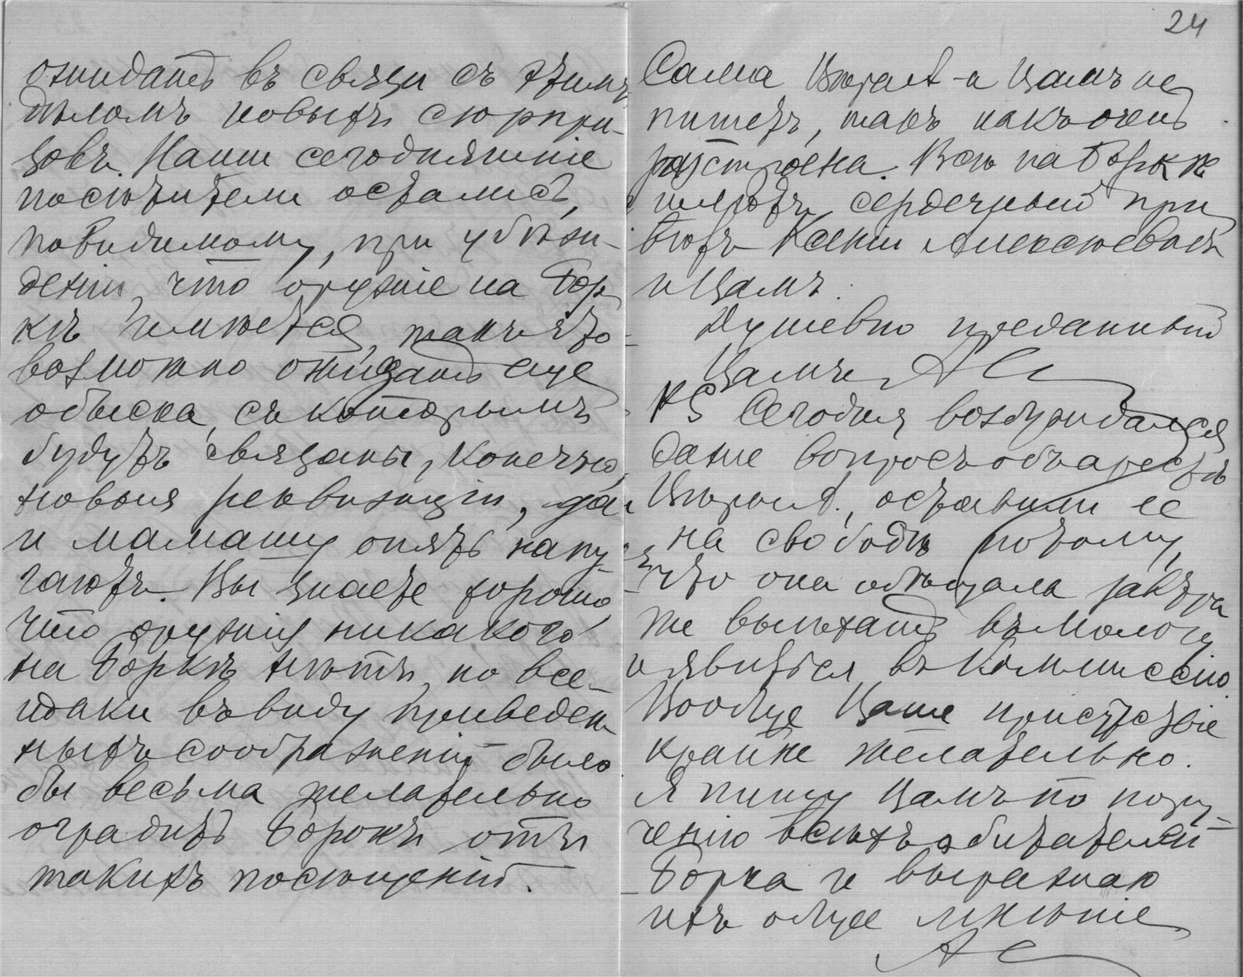 ожидать въ связи съ этимъ
дѣломъ новыхъ сюрпри-
зовъ. Наши сегодняшніе
посѣтители остались,
повидимому, при убѣж-
деніи, что оружіе на Бор-
кѣ имѣется, такъ что
возможно ожидать еще
обыска, съ которымъ
будутъ связаны, конечно,
новыя реквизиціи, да
и мамашу опять напу-
гаютъ. Вы знаете хорошо
что оружія никакого
на Боркѣ нѣтъ, но все-
таки въ виду приведен-
ныхъ соображеній было
бы весьма желательно
оградить Борокъ отъ
такихъ посѣщеній.
24
Сама Вамъ не
пишетъ, такъ какъ очень
разстроена. Всѣ на Боркѣ
шлютъ сердечный при-
вѣтъ Ксеніи Алексѣевнѣ
и Вамъ.
Душевно преданный
Вамъ АС
PS Сегодня возбуждался
даже вопросъ объ арестѣ
оставили ее
на свободѣ потому,
что она обѣщала завтра
же выѣхать въ Мологу
и явиться въ Коммиссію.
Вообще Ваше присутствіе
крайне желательно.
Я пишу Вамъ по пору-
ченію всѣхъ обитателей
Борка и выражаю
ихъ общее мнѣніе
АС